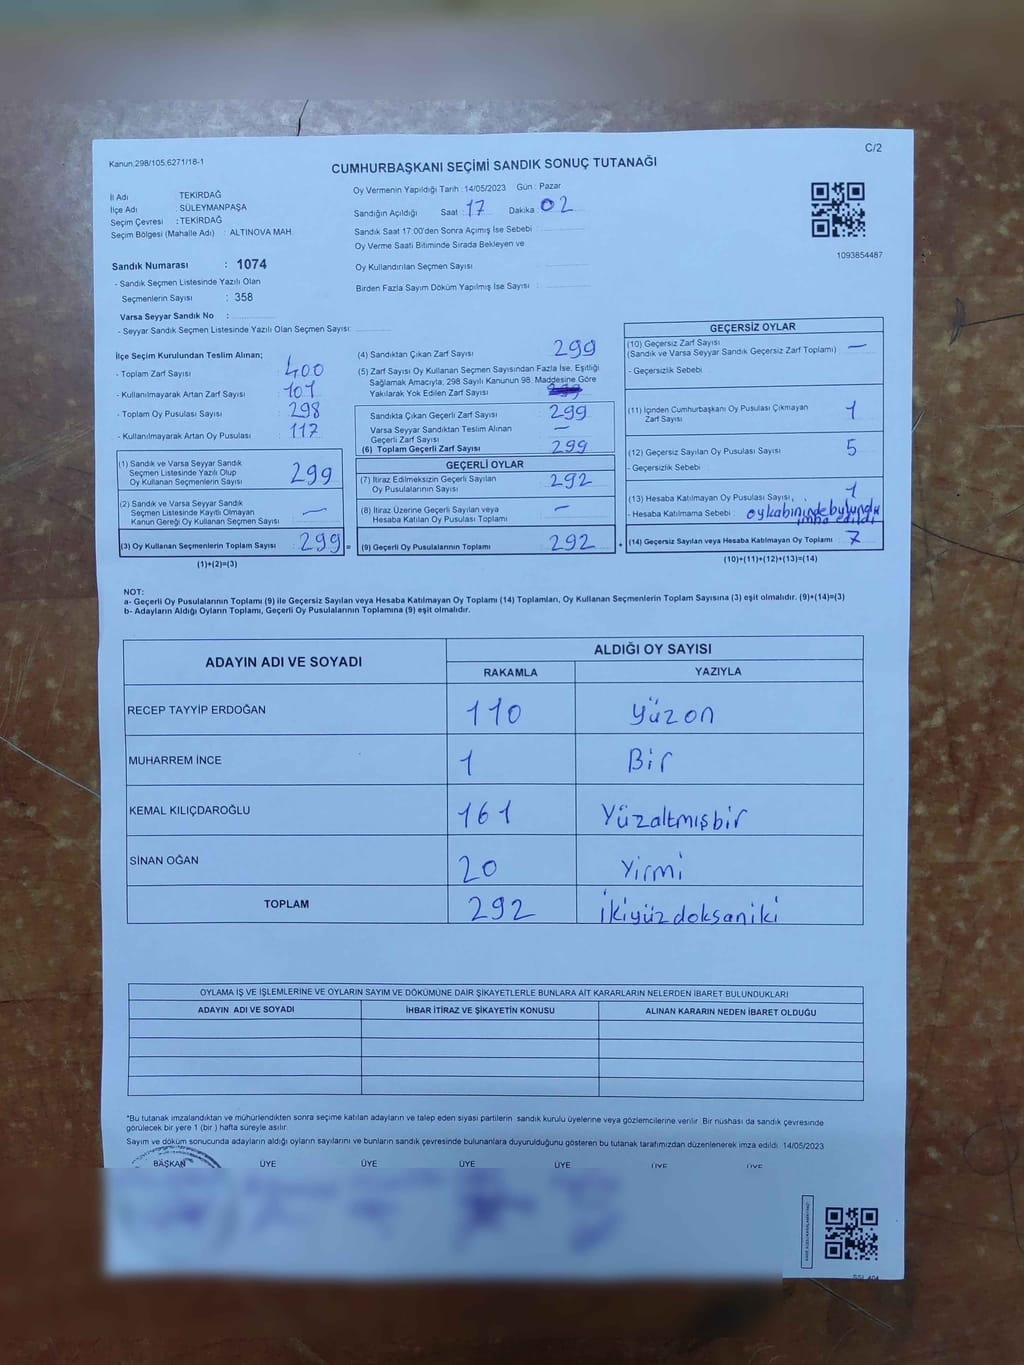 Kanun.298/105.6271/18-1
C/2
CUMHURBAŞKANI SEÇİMİ SANDIK SONUÇ TUTANAĞI
İl Adı : TEKİRDAĞ
İlçe Adı : SÜLEYMANPAŞA
Seçim Çevresi : TEKİRDAĞ
Seçim Bölgesi (Mahalle Adı) : ALTINOVA MAH.
Sandık Numarası : 1074
- Sandık Seçmen Listesinde Yazılı Olan
Seçmenlerin Sayısı : 358
Varsa Seyyar Sandık No :
- Seyyar Sandık Seçmen Listesinde Yazılı Olan Seçmen Sayısı:
Oy Vermenin Yapıldığı Tarih : 14/05/2023 Gün : Pazar
Sandığın Açıldığı Saat : 17 Dakika : 02
Sandık Saat 17:00'den Sonra Açımış İse Sebebi :
Oy Verme Saati Bitiminde Sırada Bekleyen ve
Oy Kullandırılan Seçmen Sayısı :
Birden Fazla Sayım Döküm Yapılmış İse Sayısı :
1093854487
İlçe Seçim Kurulundan Teslim Alınan;
- Toplam Zarf Sayısı : 400
- Kullanılmayarak Artan Zarf Sayısı : 101
- Toplam Oy Pusulası Sayısı : 298
- Kullanılmayarak Artan Oy Pusulası : 117
(1) Sandık ve Varsa Seyyar Sandık
Seçmen Listesinde Yazılı Olup
Oy Kullanan Seçmenlerin Sayısı : 299
(2) Sandık ve Varsa Seyyar Sandık
Seçmen Listesinde Kayıtlı Olmayan
Kanun Gereği Oy Kullanan Seçmen Sayısı : —
(3) Oy Kullanan Seçmenlerin Toplam Sayısı : 299 =
(1)+(2)=(3)
(4) Sandıktan Çıkan Zarf Sayısı : 299
(5) Zarf Sayısı Oy Kullanan Seçmen Sayısından Fazla İse, Eşitliği
Sağlamak Amacıyla; 298 Sayılı Kanunun 98. Maddesine Göre
Yakılarak Yok Edilen Zarf Sayısı :
Sandıkta Çıkan Geçerli Zarf Sayısı : 299
Varsa Seyyar Sandıktan Teslim Alınan
Geçerli Zarf Sayısı : —
(6) Toplam Geçerli Zarf Sayısı : 299
GEÇERLİ OYLAR
(7) İtiraz Edilmeksizin Geçerli Sayılan
Oy Pusulalarının Sayısı : 292
(8) İtiraz Üzerine Geçerli Sayılan veya
Hesaba Katılan Oy Pusulaları Toplamı : —
(9) Geçerli Oy Pusulalarının Toplamı : 292 +
GEÇERSİZ OYLAR
(10) Geçersiz Zarf Sayısı
(Sandık ve Varsa Seyyar Sandık Geçersiz Zarf Toplamı) : —
- Geçersizlik Sebebi :
(11) İçinden Cumhurbaşkanı Oy Pusulası Çıkmayan
Zarf Sayısı : 1
(12) Geçersiz Sayılan Oy Pusulası Sayısı : 5
- Geçersizlik Sebebi :
(13) Hesaba Katılmayan Oy Pusulası Sayısı : 1
- Hesaba Katılmama Sebebi : oy kabininde bulundu
imha edildi
(14) Geçersiz Sayılan veya Hesaba Katılmayan Oy Toplamı : 7
(10)+(11)+(12)+(13)=(14)
NOT:
a- Geçerli Oy Pusulalarının Toplamı (9) ile Geçersiz Sayılan veya Hesaba Katılmayan Oy Toplamı (14) Toplamları, Oy Kullanan Seçmenlerin Toplam Sayısına (3) eşit olmalıdır. (9)+(14)=(3)
b- Adayların Aldığı Oyların Toplamı, Geçerli Oy Pusulalarının Toplamına (9) eşit olmalıdır.
ADAYIN ADI VE SOYADI
ALDIĞI OY SAYISI
RAKAMLA YAZIYLA
RECEP TAYYİP ERDOĞAN 110 yüzon
MUHARREM İNCE 1 Bir
KEMAL KILIÇDAROĞLU 161 Yüzaltmışbir
SİNAN OĞAN 20 Yirmi
TOPLAM 292 ikiyüzdoksaniki
OYLAMA İŞ VE İŞLEMLERİNE VE OYLARIN SAYIM VE DÖKÜMÜNE DAİR ŞİKAYETLERLE BUNLARA AİT KARARLARIN NELERDEN İBARET BULUNDUKLARI
ADAYIN ADI VE SOYADI İHBAR İTİRAZ VE ŞİKAYETİN KONUSU ALINAN KARARIN NEDEN İBARET OLDUĞU
*Bu tutanak imzalandıktan ve mühürlendikten sonra seçime katılan adayların ve talep eden siyasi partilerin sandık kurulu üyelerine veya gözlemcilerine verilir. Bir nüshası da sandık çevresinde
görülecek bir yere 1 (bir ) hafta süreyle asılır.
Sayım ve döküm sonucunda adayların aldığı oyların sayılarını ve bunların sandık çevresinde bulunanlara duyurulduğunu gösteren bu tutanak tarafımızdan düzenlenerek imza edildi. 14/05/2023
BAŞKAN ÜYE ÜYE ÜYE ÜYE ÜYE ÜYE